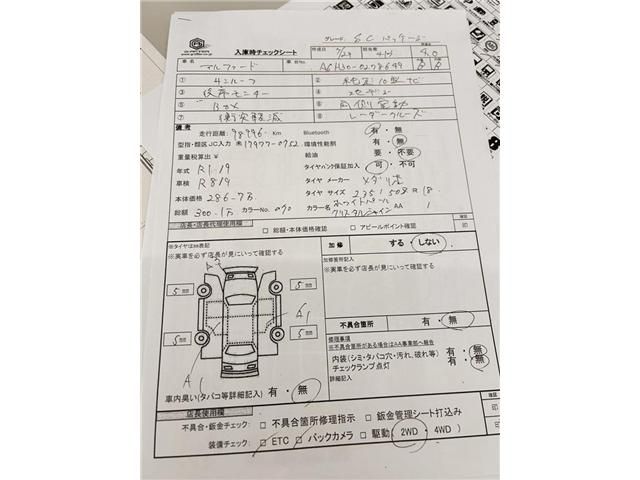 グレード: SCパッケージ
入庫時チェックシート 作成日 7/29 担当者
車名 アルファード 車台No. AGH30-0278649
① サンルーフ ② 純正10型ナビ
③ 後席モニター ④
⑤ Bカメ ⑥ 両側電動
⑦ 衝突軽減 ⑧ レーダークルーズ
備考
走行距離: 98996 Km Bluetooth 有・無
型指・類区JC入力 未 17977-0752 環境性能割 有・無
重量税算出¥ 給油 要・不要
年式 R1.19 タイヤパンク保証加入 可・不可
車検 R8/9 タイヤ メーカー
本体価格 286.7万 タイヤ サイズ 235 / 50R R 18
総額 300.1万 カラーNo. 070 カラー名 ホワイトパールクリスタルシャイン AA 1
店長・店長代理使用欄 □ 総額・本体価格確認 □ アピールポイント確認 確認 印
※タイヤは㎜表記
※実車を必ず店長が見にいって確認する
加修 する・しない
加修箇所記入
※実車を必ず店長が見にいって確認する
5 mm 5 mm
A1
5 mm 5 mm
不具合箇所 有・無
修理事項
※不具合箇所がある場合はAA事業部へ報告
内装(シミ・タバコ穴・汚れ、破れ等) 有・無
チェックランプ点灯
詳細記入
車内臭い(タバコ等詳細記入) 有・無
店長使用欄 確認
不具合・鈑金チェック: □ 不具合箇所修理指示 □ 鈑金管理シート打込み 印
装備チェック: □ ETC □ バックカメラ □ 駆動( 2WD ・ 4WD ) 印